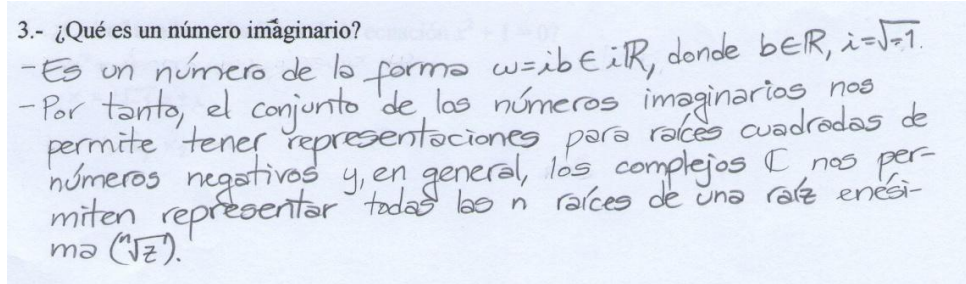 3.- ¿Qué es un número imaginario?
-Es un número de la forma ω=ib∈iℝ, donde b∈ℝ, i=√-1.
-Por tanto, el conjunto de los números imaginarios nos
permite tener representaciones para raíces cuadradas de
números negativos y, en general, los complejos ℂ nos per-
miten representar todas las n raíces de una raíz enési-
ma (ⁿ√z).